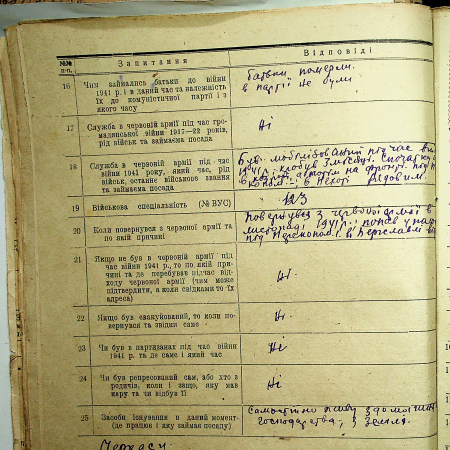 №№ п-п.
Запитання
Відповіді
16
Чим займались батьки до війни
1941 р. і в даний час та належність
їх до комуністичної партії і з
якого часу
батьки померли.
в партії не були
17
Служба в червоній армії під час гро-
мадянської війни 1917—22 років,
рід військ та займаєма посада
Ні
18
Служба в червоній армії під час
війни 1941 року, який час, рід
військ, останнє військове звання
та займаєма посада
Був мобілізований під час
1941 р. і пробув 3 місяці. Спочатку
на фронті
в пехоті рядовим.
19
Військова спеціальність (№ ВУС)
123
20
Коли повернувся з червоної армії та
по якій причині
Повернувся з червоної армії в
листопаді 1941 р. попав у
під Перекопом. в Бериславлі
21
Якщо не був в червоній армії під
час війни 1941 р., то по якій при-
чині та де перебував підчас від-
ходу червоної армії (чим може
підтвердити, а коли свідками то їх
адреса)
Ні.
22
Якщо був евакуйований, то коли по-
вернувся та звідки саме
Ні.
23
Чи був в партизанах під час війни
1941 р. та де саме і який час
Ні
24
Чи був репресований сам, або хто з
родичів, коли і защо, яку мав
кару та чи відбув її
Ні
25
Засоби існування в даний момент
(де працює і яку займає посаду)
Самостійно живу з домашн.
господарства, з землі.